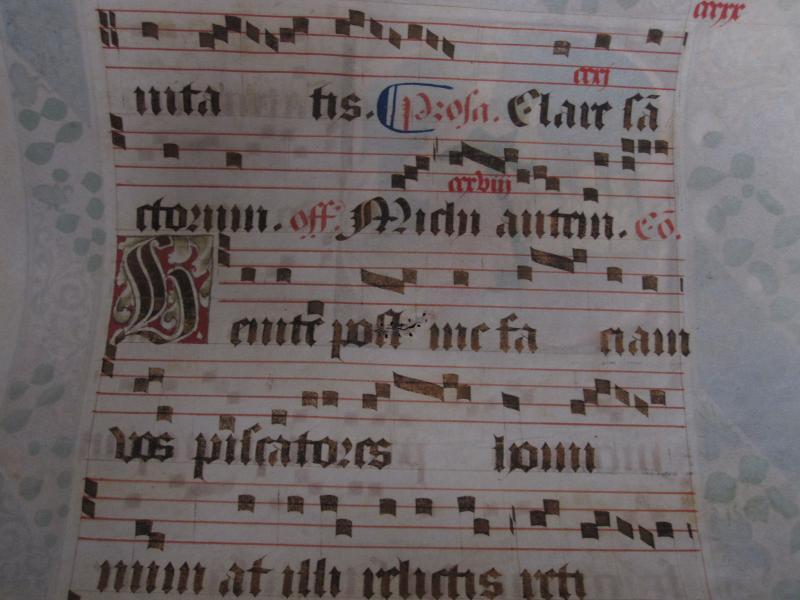 cxxx
nita tis. Prosa. Clare sā
cxxj
ctorum. off. Michi autem. Cō.
cxviij
Venite post me fa ciam
vos piscatores homi
num at illi relictis reti